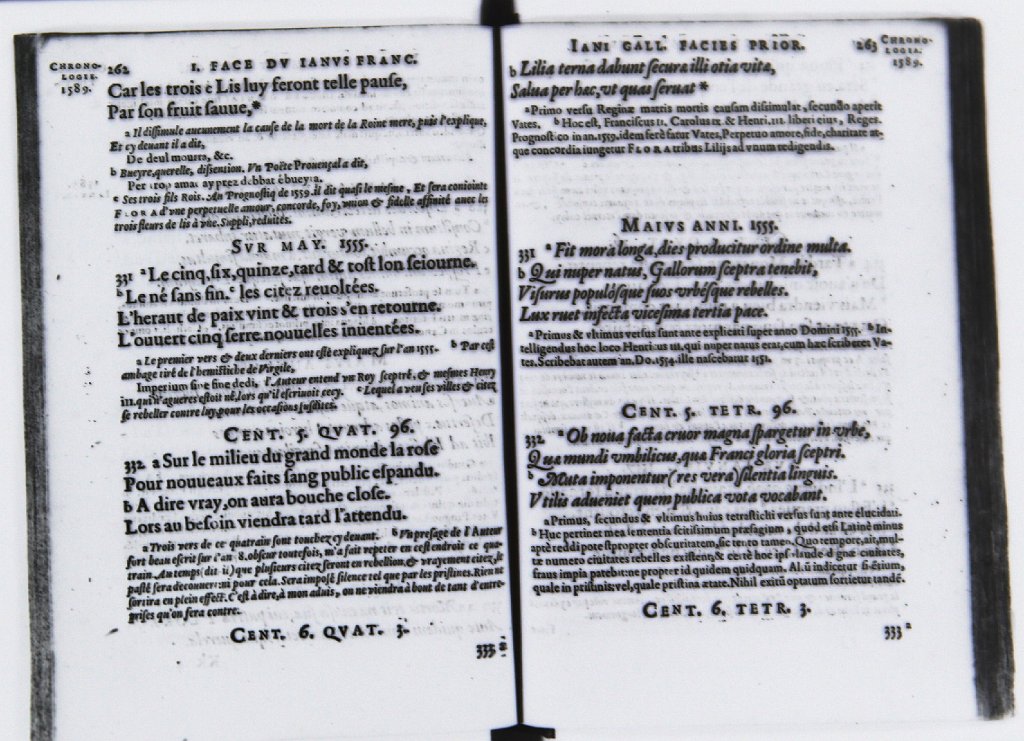 CHRONO-
LOGIE.
1589.
262 I. FACE DV IANVS FRANC.
Car les trois è Lis luy feront telle pause,
Par son fruit sauue,*
a Il dissimule aucunement la cause de la mort de la Roine mere, puis l'explique,
Et cy deuant il a dit,
De deul mourra, &c.
b Bueyre, querelle, dissention. Vn Poëte Prouençal a dit,
Per trop amar ay prez debbat è bueyra.
c Ses trois fils Rois. Au Prognostiq de 1559. il dit quasi le mesme, Et sera conioint e
FLORA d'vne perpetuelle amour, concorde, foy, vnion & fidelle affinité auec les
trois fleurs de lis à vne. Suppli, reduites.
SVR MAY. 1555.
331 a Le cinq, six, quinze, tard & tost lon seiourne.
b Le né sans fin. c les citez reuoltées.
L'heraut de paix vint & trois s'en retourne.
L'ouuert cinq serre. nouuelles inuentées.
a Le premier vers & deux derniers ont esté expliquez sur l'an 1555. b Par cest
ambage tiré de l'hemistiche de Virgile,
Imperium sine fine dedi, l'Auteur entend vn Roy sceptré, & mesmes Henry
III. qui n'agueres estoit né, lors qu'il escriuoit cecy. c Lequel a veu ses villes & citez
se rebeller contre luy, pour les occasions susdites.
CENT. 5. QVAT. 96.
332 a Sur le milieu du grand monde la rose
Pour nouueaux faits sang public espandu.
b A dire vray, on aura bouche close.
Lors au besoin viendra tard l'attendu.
a Trois vers de ce quatrain sont touchez cy deuant. b Vn presage de l'Auteur
fort beau escrit sur l'an 8. obscur toutefois, m'a fait repeter en cest endroit ce qua-
train. Au temps (dit-il) que plusieurs citez seront en rebellion, & vrayement citez, le
passé sera descouuert: ni pour cela. Sera imposé silence tel que par les pristines. Rien ne
sortira en plein effect. C'est à dire, à mon aduis, on ne viendra à bout de tant d'entre-
prises qu'on fera contre.
CENT. 6. QVAT. 3.
333 a
IANI GALL. FACIES PRIOR. 263
CHRONO-
LOGIA.
1589.
b Lilia terna dabunt securæ illi otia vitæ,
Salua per hæc, vt quas seruat *
a Primo versu Reginæ matris mortis causam dissimulat, secundo aperit
Vates. b Hoc est, Franciscus II. Carolus IX. & Henri. III. liberi eius, Reges.
Prognostico in an. 1559. idem ferè fatur Vates, Perpetuo amore, fide, charitate at-
que concordia iungetur FLORA tribus Lilijs ad vnum redigendis.
MAIVS ANNI. 1555.
331 a Fit mora longa, dies producitur ordine multa.
b Qui nuper natus, Gallorum sceptra tenebit,
Visurus populósque suos vrbésque rebelles.
Lux ruet infecta vicesima tertia pace.
a Primus & vltimus versus sunt ante explicati super anno Domini 1555. b In-
telligendus hoc loco Henricus III. qui nuper natus erat, cum hæc scriberet Va-
tes. Scribebat autem an. Do. 1554. ille nascebatur 1551.
CENT. 5. TETR. 96.
332 a Ob noua facta cruor magna spargetur in vrbe,
Quæ mundi vmbilicus, quæ Franci gloria sceptri.
b Muta imponentur (res vera) silentia linguis.
Vtilis adueniet quem publica vota vocabant.
a Primus, secundus & vltimus huius tetrastichi versus sunt ante elucidati.
b Huc pertinet mea sententia scitissimum præsagium, quod etsi Latinè minus
aptè reddi potest propter obscuritatem, sic tero tamen. Quo tempore, ait, mul-
tæ numero ciuitates rebelles existent, & certè hoc ipso laude dignæ ciuitates,
fraus impia patebit: ne propter id quidem quidquam. Alitu indicetur silentium,
quale in pristinis: vel, quale pristina ætate. Nihil exitũ optatum sortietur tandé.
CENT. 6. TETR. 3.
333 a